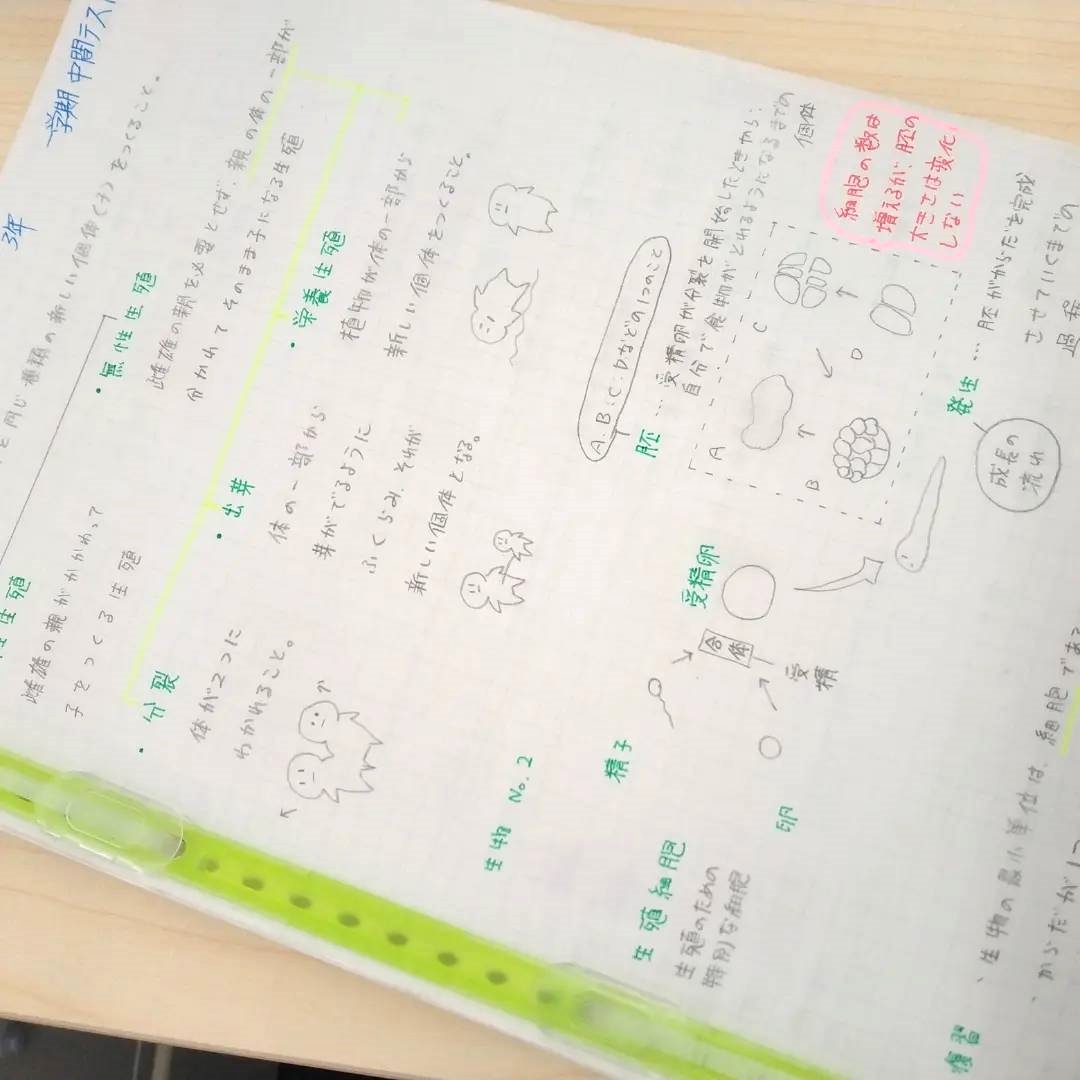 学期 中間テスト
3年
と同じ種類の新しい個体(子)をつくること。
性生殖
雌雄の親がかかわって
子をつくる生殖
・無性生殖
雌雄の親を必要とせず、親の体の一部が
分かれてそのまま子になる生殖
・分裂
体が2つに
わかれること。
・出芽
体の一部から
芽がでるように
ふくらみ、それが
新しい個体となる。
・栄養生殖
植物が体の一部から
新しい個体をつくること。
生物 No.2
生殖細胞
生殖のための
特別な細胞
精子
卵
合体
受精
受精卵
A.B.C.Dなどの1つのこと
胚…受精卵が分裂を開始したときから、
自分で食物がとれるようになるまでの
個体
A
B
C
D
細胞の数は
増えるが、胚の
大きさは変化
しない
発生…胚がからだを完成
させていくまでの
過程
成長の
流れ
復習
・生物の最小単位は、細胞である
・からだが1つ